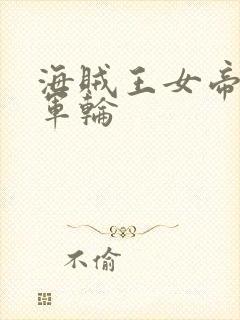 海賊王女帝
軍輪
不偷